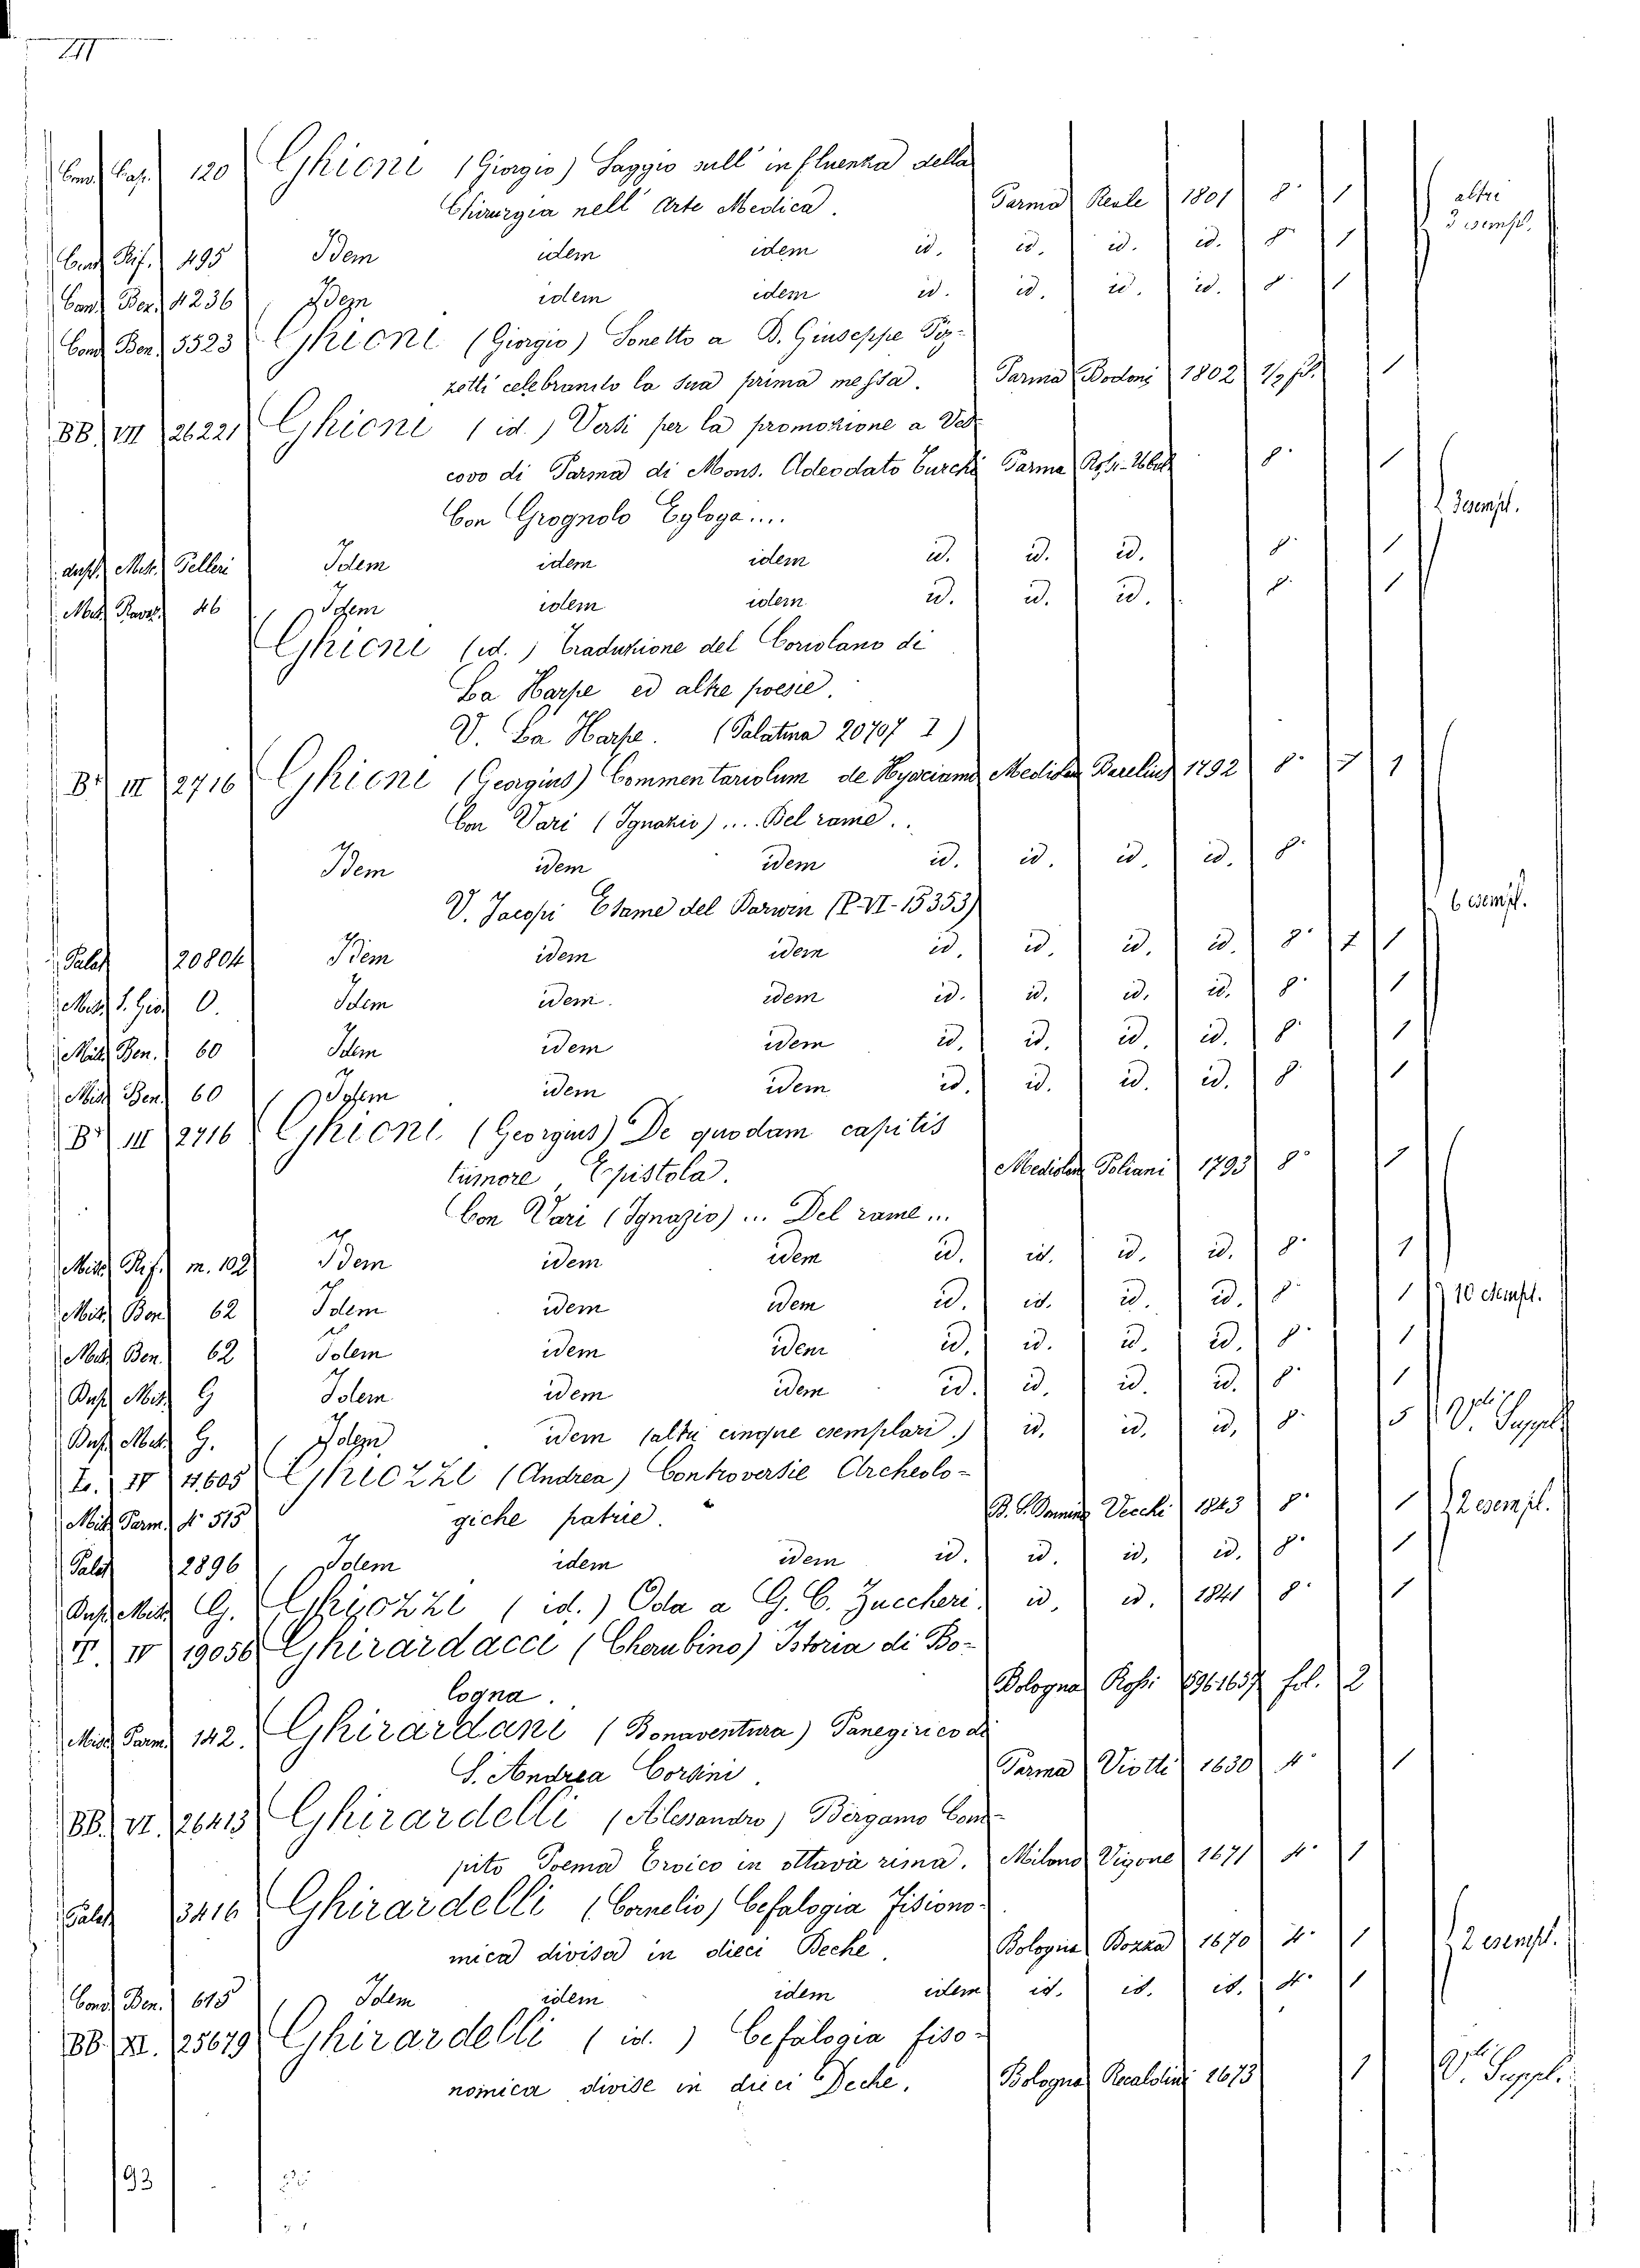 Cas. 120 Ghioni (Giorgio) Saggio sull' influenza della
Chirurgia nell' Arte Medica. Parma Reale 1801 8° 1 altri
Rif. 495 Idem idem idem id. id. id. id. 8° 1
Ben. 4236 Idem idem idem id. id. id. id. 8° 1
Ben. 5523 Ghioni (Giorgio) Sonetto a D. Giuseppe Piz-
zotti celebrando la sua prima messa. Parma Bodoni 1802 1
BB. VII 26221 Ghioni (id.) Versi per la promozione a Ves-
covo di Parma di Mons. Adeodato Turchi Parma 8° 1
Con Grognolo Egloga.... 3 esempl.
Pelleri Idem idem idem id. id. id. 8° 1
46 Idem idem idem id. id. id. 8° 1
Ghioni (id.) Traduzione del Coriolano di
La Harpe ed altre poesie.
V. La Harpe. (Palatina 20707 I)
III 2716 Ghioni (Georgius) Commentariolum de Hyosciamo Mediolan. Barelius 1792 8° 1
Con Vari (Ignazio) .... Del rame..
Idem idem idem id. id. id. id. 8°
V. Jacopi Esame del Darwin (P. VI - 15353) 6 esempl.
Palat 20804 Idem idem idem id. id. id. id. 8° 1
Misc. S. Gio. O. Idem idem. idem id. id. id. id. 8° 1
Misc. Ben. 60 Idem idem idem id. id. id. id. 8° 1
Misc. Ben. 60 Idem idem idem id. id. id. id. 8° 1
III 2716 Ghioni (Georgius) De quodam capitis
tumore, Epistola. Mediolan. Poliani 1793 8° 1
Con Vari (Ignazio) ... Del rame...
Misc. Rif. m. 102 Idem idem idem id. id. id. id. 8° 1
Misc. Ben 62 Idem idem idem id. id. id. id. 8° 1 10 esempl.
Misc. Ben. 62 Idem idem idem id. id. id. id. 8° 1
Dupl. Misc. G Idem idem idem id. id. id. id. 8° 1
Dupl. Misc. G. Idem idem (altri cinque esemplari.) id. id. id. 8° 5 V. Suppl.
IV 4605 Ghiozzi (Andrea) Controversie Archeolo-
Misc. Parm. 4° 515 giche patrie. B. S. Donnino Vecchi 1843 8° 1 2 esempl.
Palat 12896 Idem idem idem id. id. id. id. 8° 1
Dupl. Misc. G. Ghiozzi (id.) Oda a G. C. Zuccheri. id. id. 1841 8° 1
T. IV 19056 Ghirardacci (Cherubino) Istoria di Bo-
logna. Bologna Rossi fol. 2
Misc. Parm. 142. Ghirardani (Bonaventura) Panegirico di
S. Andrea Corsini. Parma Viotti 1630 4° 1
BB. VI. 26413 Ghirardelli (Alessandro) Bergamo Com-
pito Poema Eroico in ottava rima. Milano Vigone 1671 4° 1
Palat 3416 Ghirardelli (Cornelio) Cefalogia Fisiono-
mica divisa in dieci Deche. Bologna Bozza 1670 4° 1 2 esempl.
Cond. Ben. 615 Idem idem idem idem id. id. id. 4° 1
BB. XI. 25679 Ghirardelli (id.) Cefalogia fiso-
nomica divise in dieci Deche. Bologna Recaldini 1673 1 V. Suppl.
93